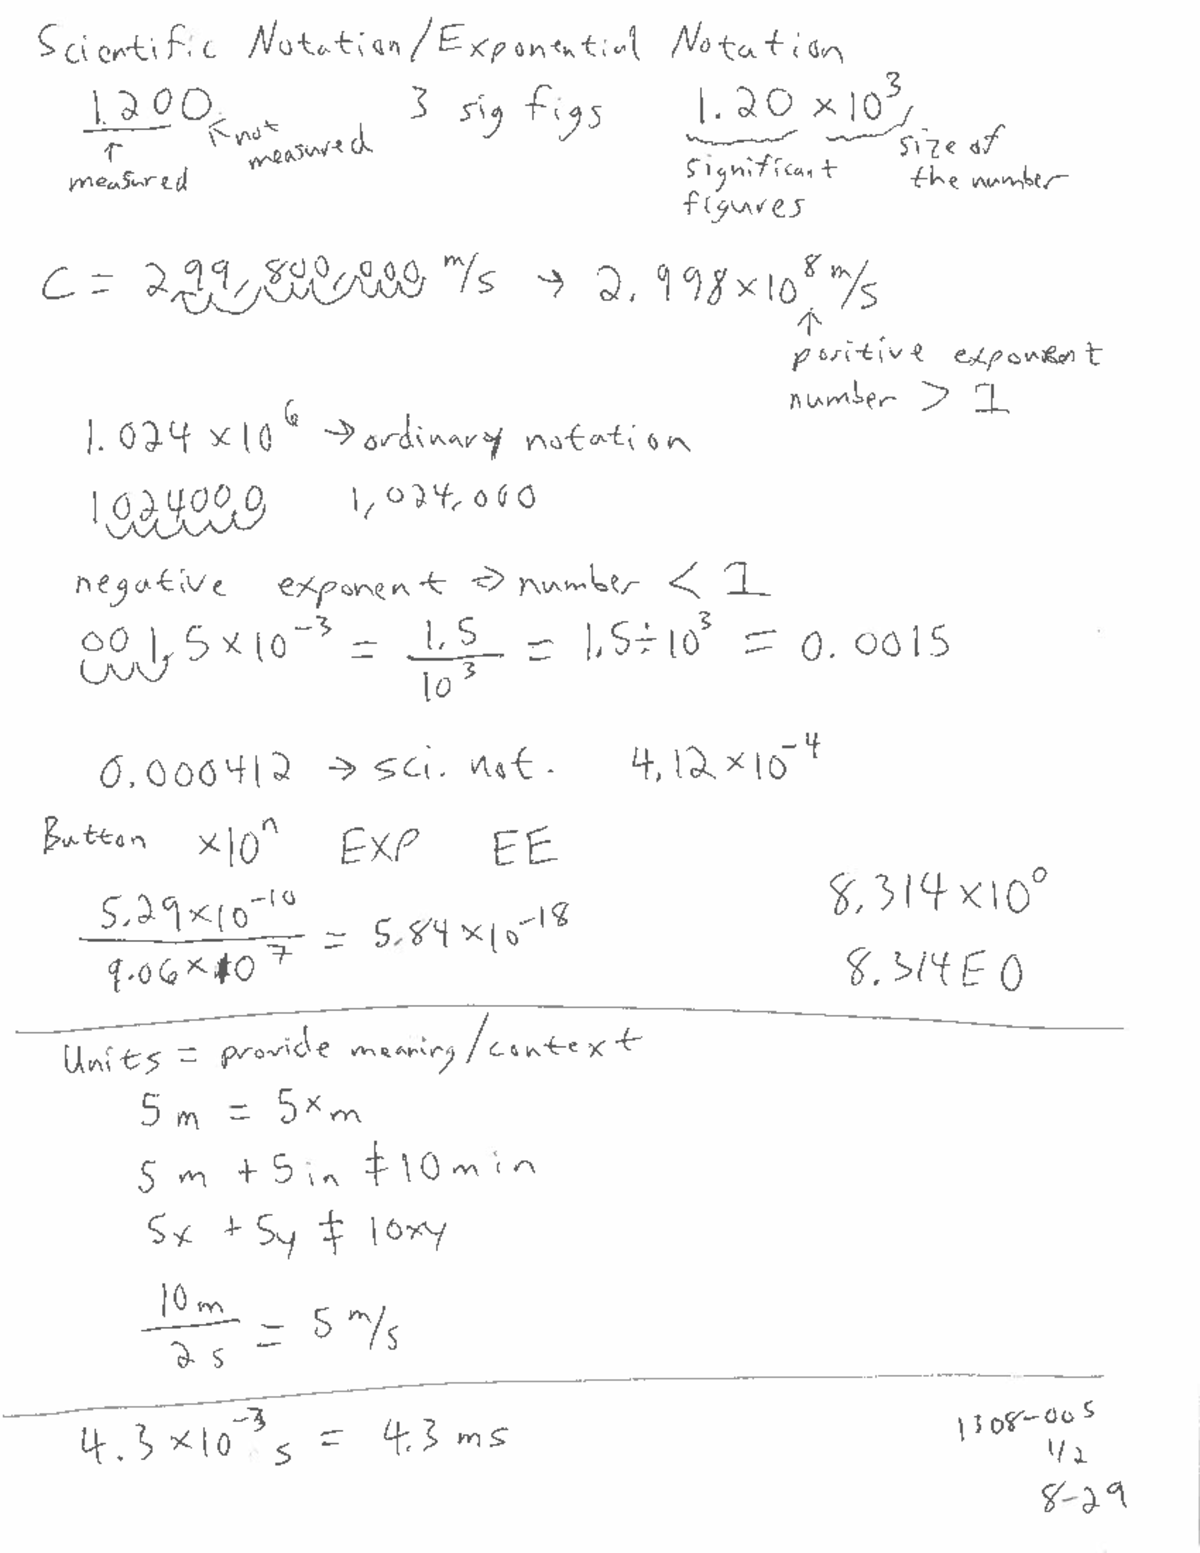 Scientific Notation/Exponential Notation
1.200. 3 sig figs 1.20 ×10³
↑ measured ↖ not measured significant figures size of the number
C = 299,800,000 m/s → 2.998×10⁸ m/s
↑
positive exponent
number > 1
1.024 ×10⁶ → ordinary notation
1024000 1,024,000
negative exponent ⇒ number < 1
001.5×10⁻³ = 1.5/10³ = 1.5÷10³ = 0.0015
0.000412 → sci. not. 4.12×10⁻⁴
Button ×10ⁿ EXP EE
5.29×10⁻¹⁰/9.06×10⁷ = 5.84×10⁻¹⁸
8.314×10⁰
8.314E0
Units = provide meaning/context
5 m = 5×m
5 m + 5 in ≠ 10 min
5x + 5y ≠ 10xy
10 m/2 s = 5 m/s
4.3×10⁻³ s = 4.3 ms
1308-005
1/2
8-29